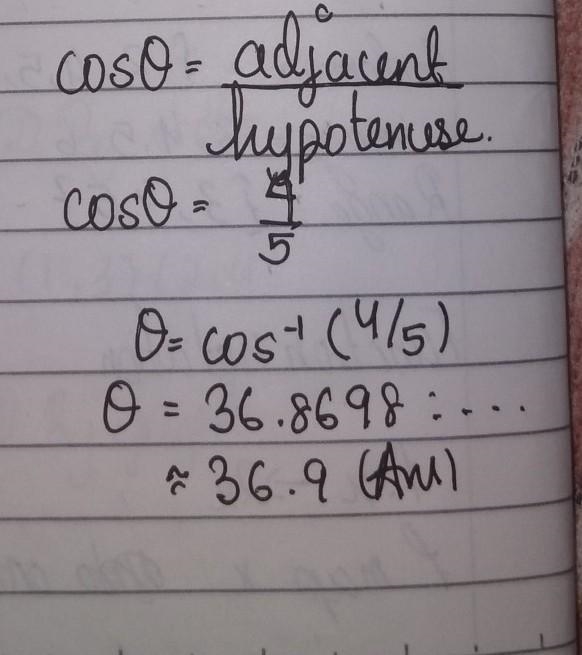 cosθ = adjacent
hypotenuse.
cosθ = 4
5
θ = cos⁻¹ (4/5)
θ = 36.8698 : ....
≈ 36.9 (Ans)